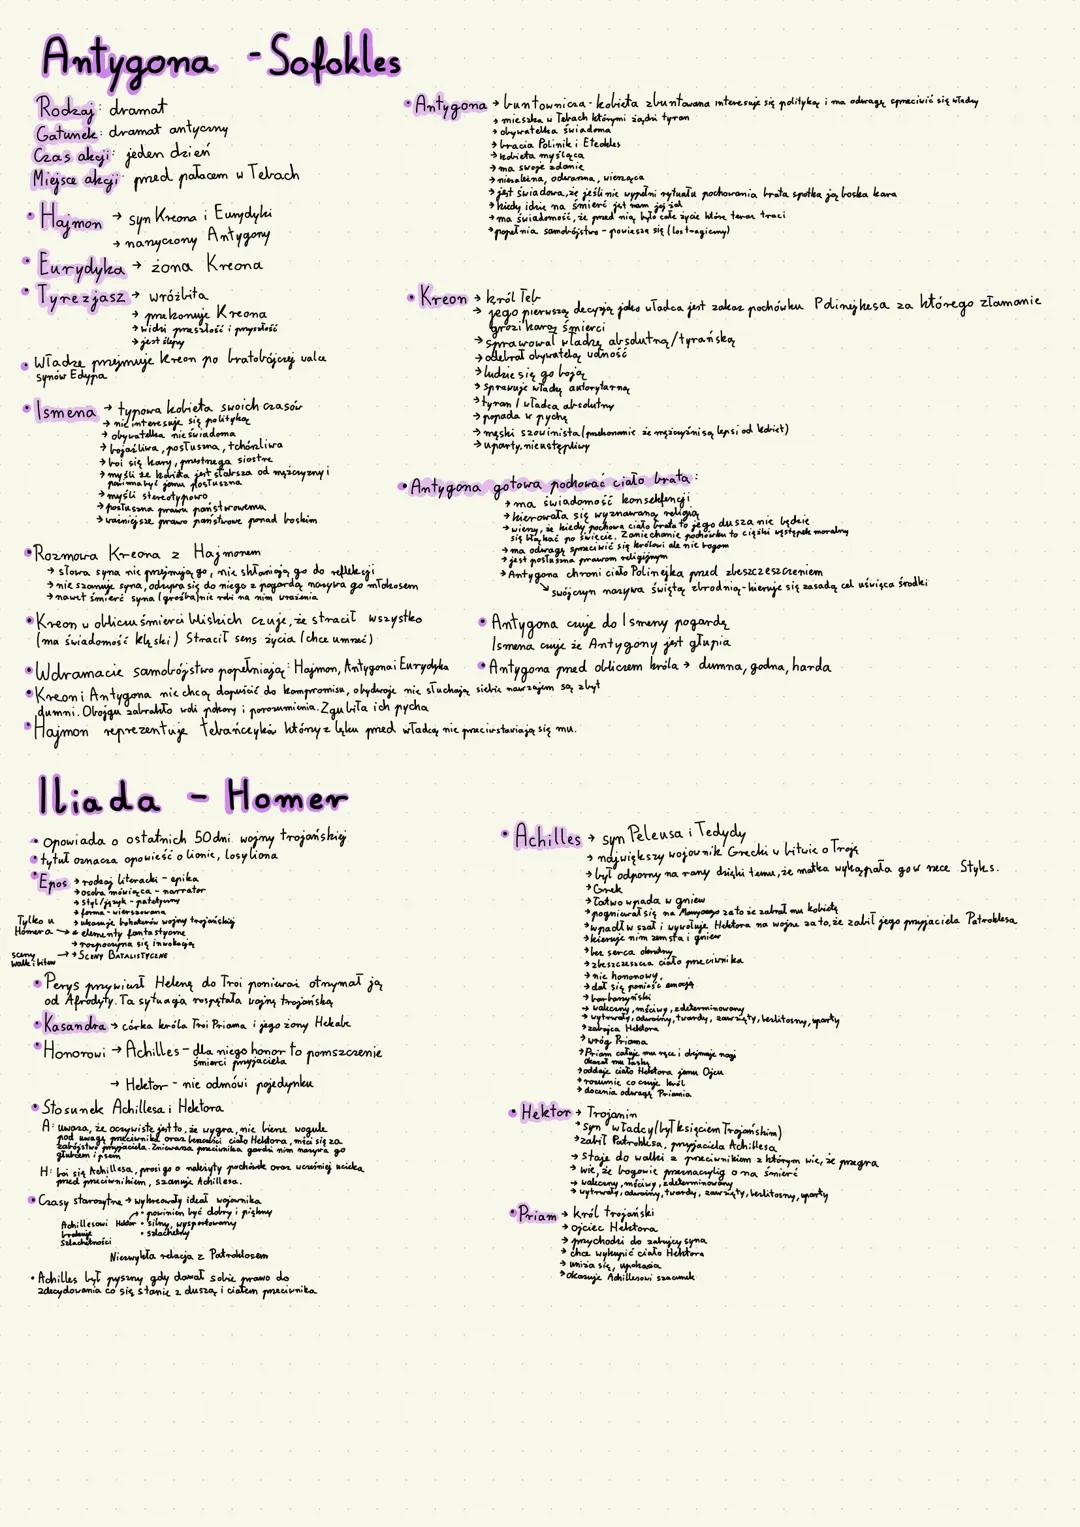 Antygona - Sofokles
Rodzaj: dramat
Gatunek: dramat antyczny
Czas akcji: jeden dzień
Miejsce akcji: przed pałacem w Tebach
• Hajmon → syn Kreona i Eurydyki
→ narzyczony Antygony
• Eurydyka → żona Kreona
• Tyrezjasz → wróżbita
→ przekonuje Kreona
→ widzi przeszłość i przyszłość
→ jest ślepy
• Władze przejmuje Kreon po bratobójczej walce
synów Edypa
• Ismena → typowa kobieta swoich czasów
→ nie interesuje się polityką
→ obywatelka nieświadoma
→ bojaźliwa, posłuszna, tchórzliwa
→ boi się kary, przestrzega siostre
→ myśli że kobieta jest słabsza od mężczyzny i
powinna być jemu posłuszna
→ myśli stereotypowo
→ posłuszna prawu państwowemu
→ ważniejsze prawo państwowe ponad boskim
• Rozmowa Kreona z Hajmonem
→ słowa syna nie przejmują go, nie skłaniają go do refleksji
→ nie szanuje syna, odzywa się do niego z pogardą nazywa go młokosem
→ nawet śmierć syna (groźba) nie robi na nim wrażenia
• Kreon w obliczu śmierci bliskich czuje, że stracił wszystko
(ma świadomość klęski) Stracił sens życia (chce umrzeć)
• W dramacie samobójstwo popełniają: Hajmon, Antygona i Eurydyka
• Kreon i Antygona nie chcą dopuścić do kompromisu, obydwoje nie słuchają siebie nawzajem są zbyt
dumni. Obojgu zabrakło woli pokory i porozumienia. Zgubiła ich pycha
• Hajmon reprezentuje tebańczyków którzy z lęku przed władcą nie przeciwstawiają się mu.
• Antygona → buntownicza - kobieta zbuntowana interesuje się polityką i ma odwagę sprzeciwić się władzy
→ mieszka w Tebach którymi rządzi tyran
→ obywatelka świadoma
→ bracia Polinik i Eteokles
→ kobieta myśląca
→ ma swoje zdanie
→ niezależna, odważna, wierząca
→ jest świadoma, że jeśli nie wypełni rytuału pochowania brata spotka ją boska kara
→ kiedy idzie na śmierć jest nam jej żal
→ ma świadomość, że przed nią było całe życie które teraz traci
→ popełnia samobójstwo - powiesza się (los tragiczny)
• Kreon → król Teb
→ jego pierwszą decyzją jako władca jest zakaz pochówku Polinejkesa za którego złamanie
grozi karą śmierci
→ sprawował władzę absolutną/tyrańską
→ odebrał obywatelą wolność
→ ludzie się go boją
→ sprawuje władzę autorytarną
→ tyran / władca absolutny
→ popada w pychę
→ męski szowinista (przekonanie że mężczyźni są lepsi od kobiet)
→ uparty, nieustępliwy
• Antygona gotowa pochować ciało brata:
→ ma świadomość konsekfencji
→ kierowała się wyznawaną religią
→ wierzy, że kiedy pochowa ciało brata to jego dusza nie będzie
się błąkać po świecie. Zaniechanie pochówku to ciężki występek moralny
→ ma odwagę sprzeciwić się królowi ale nie bogom
→ jest posłuszna prawom religijnym
→ Antygona chroni ciało Polinejka przed zbeszczeszczeniem
↘ swój czyn nazywa świętą zbrodnią - kieruje się zasadą cel uświęca środki
• Antygona czuje do Ismeny pogardę
Ismena czuje że Antygony jest głupia
• Antygona przed obliczem króla → dumna, godna, harda
Iliada - Homer
• opowiada o ostatnich 50 dni wojny trojańskiej
• tytuł oznacza opowieść o Ilionie, losy Iliona
• Epos → rodzaj literacki - epika
→ osoba mówiąca - narrator
→ styl/język - patetyczny
→ forma - wierszowana
→ ukazuje bohaterów wojny trojańskiej
Tylko u Homera → • elementy fantastyczne
→ rozpoczyna się inwokacją
sceny walk i bitew → → SCENY BATALISTYCZNE
• Perys przywiózł Helenę do Troi ponieważ otrzymał ją
od Afrodyty. Ta sytuacja rozpętała wojnę trojańską
• Kasandra → córka króla Troi Priama i jego żony Hekabe
• Honorowi → Achilles - dla niego honor to pomszczenie
śmierci przyjaciela
→ Hektor - nie odmówi pojedynku
• Stosunek Achillesa i Hektora
A: uważa, że oczywiste jest to, że wygra, nie bierze wogule
pod uwagę przeciwnika oraz bezcześci ciało Hektora, mści się za
zabójstwo przyjaciela. Znieważa przeciwnika gardzi nim nazywa go
głubcem i psem
H: boi się Achillesa, prosi go o należyty pochówek oraz wcześniej ucieka
przed przeciwnikiem, szanuje Achillesa.
• Czasy starożytne → wykreowały ideał wojownika
• powinien być dobry i piękny
Achillesowi brakuje Szlachetności
Hektor • silny, wysportowany
• szlachetny
Niezwykła relacja z Patroklosem
• Achilles był pyszny gdy dawał sobie prawo do
zdecydowania co się stanie z duszą i ciałem przeciwnika
• Achilles → syn Peleusa i Tedydy
→ największy wojownik Grecki w bitwie o Troję
→ był odporny na rany dzięki temu, że matka wykąpała go w rzece Styks.
→ Grek
→ Łatwo wpada w gniew
→ pogniewał się na za to że zabrał mu kobietę
→ wpadł w szał i wywołuje Hektora na wojne za to, że zabił jego przyjaciela Patroklesa
→ kieruje nim zemsta i gniew
→ bez serca okrutny
→ zbeszczeszcza ciało przeciwnika
→ nie honorowy,
→ dał się ponieść emocją
→ barbarzyński
→ waleczny, mściwy, zdeterminowany
→ wytrwały, odważny, twardy, zawzięty, bezlitosny, uparty
→ zabójca Hektora
→ wróg Priama
→ Priam całuje mu ręce i obejmuje nogi
okazał mu łaskę
→ oddaje ciało Hektora jemu Ojcu
→ rozumie co czuje król
→ docenia odwagę Priamia
• Hektor → Trojanin
→ syn władcy (był księciem Trojańskim)
→ zabił Patroklesa, przyjaciela Achillesa
→ staje do walki z przeciwnikiem z którym wie, że przegra
→ wie, że bogowie przeznaczylig o na śmierć
→ waleczny, mściwy, zdeterminowany
→ wytrwały, odważny, twardy, zawzięty, bezlitosny, uparty
• Priam → król trojański
→ ojciec Hektora
→ przychodzi do zabójcy syna
→ chce wykupić ciało Hektora
→ uniża się, upokaża
→ okazuje Achillesowi szacunek